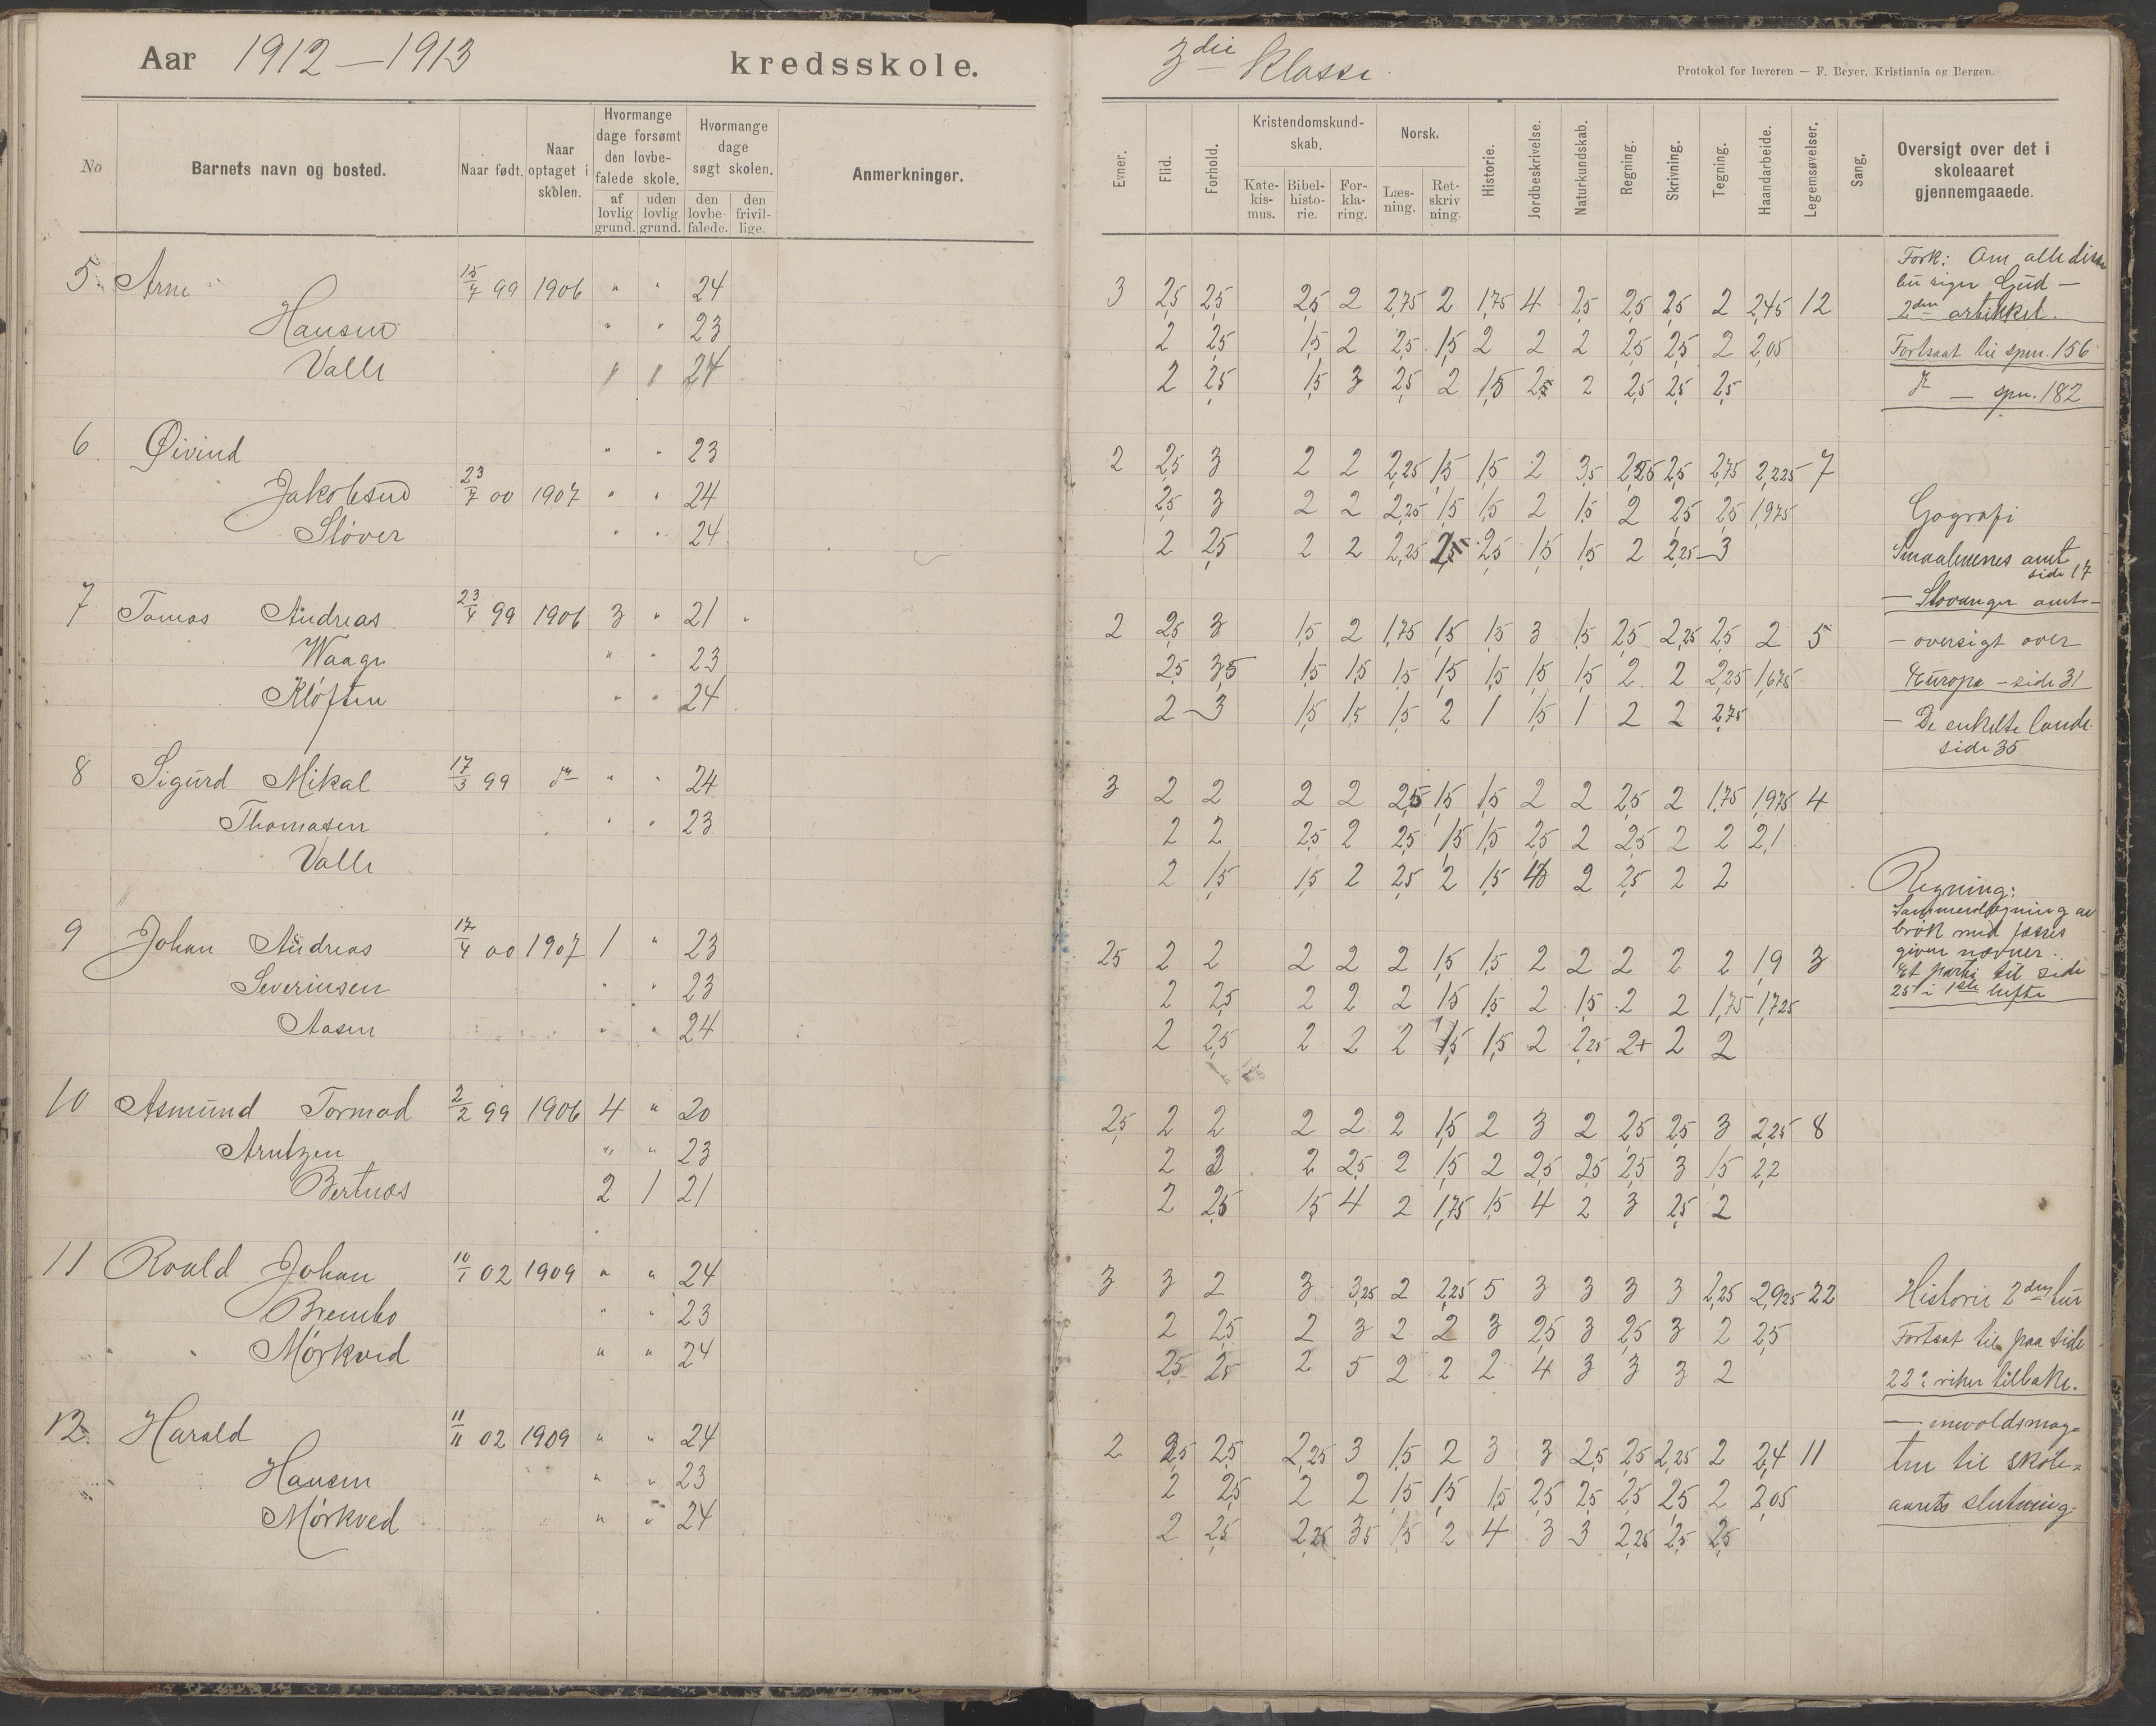 Aar 1912-1913 kredsskole.
No Barnets navn og bosted. Naar født. Naar optaget i skolen. Hvormange dage forsømt den lovbefalede skole. Hvormange dage søgt skolen. Anmerkninger.
af lovlig grund. uden lovlig grund. den lovbefalede. den frivillige.
5. Arne 15/7 99 1906 " " 24
Hansen " " 23
Valle " " 24
6. Øivind " " 23
Jakobsen 23/7 00 1907 " " 24
Støver " " 24
7 Tomas Andreas 23/4 99 1906 3 " 21 "
Waage " " 23
Kløften " " 24
8 Sigurd Mikal 17/3 99 do " " 24
Thomasen " " 23
Valle
9 Johan Andreas 17/4 00 1907 1 " 23
Severinsen " " 23
Aasen " " 24
10 Asmund Tormod 2/2 99 1906 4 " 20
Arntzen " " 23
Bertnes 2 1 21
11 Roald Johan 10/1 02 1909 " " 24
Brembo " " 23
Mørkved " " 24
12. Harald 11/11 02 1909 " " 24
Hansen " " 23
Mørkved " " 24
3die Klasse
Protokol for læreren — F. Beyer, Kristiania og Bergen.
Evner. Flid. Forhold. Kristendomskundskab. Norsk. Historie. Jordbeskrivelse. Naturkundskab. Regning. Skrivning. Tegning. Haandarbeide. Legemsøvelser. Sang. Oversigt over det i skoleaaret gjennemgaaede.
Katekismus. Bibelhistorie. Forklaring. Læsning. Retskrivning.
3 2,5 2,5 2,5 2 2,75 2 1,75 4 2,5 2,5 2,5 2 2,45 12
2 2,5 1,5 2 2,5 1,5 2 2 2 2,5 2,5 2 2,05
2 2,5 1,5 3 2,5 2 1,5 2,5 2 2,5 2,5 2,5
2 2,5 3 2 2 2,25 1,5 1,5 2 3,5 2,25 2,5 2,75 2,225 7
2,5 3 2 2 2,25 1,5 1,5 2 1,5 2 2,5 2,5 1,975
2 2,5 2 2 2,25 2,5 1,5 1,5 2 2,25 3
2 2,5 3 1,5 2 1,75 1,5 1,5 3 1,5 2,5 2,25 2,5 2 5
2,5 3,5 1,5 1,5 1,5 1,5 1,5 1,5 1,5 2 2 2,25 1,675
2 3 1,5 1,5 1,5 2 1 1,5 1 2 2 2,75
3 2 2 2 2 2,5 1,5 1,5 2 2 2,5 2 1,75 1,975 4
2 2 2,5 2 2,5 1,5 1,5 2,5 2 2,5 2 2 2,1
2 1,5 1,5 2 2,5 2 1,5 2 2,5 2 2
2,5 2 2 2 2 2 1,5 1,5 2 2 2 2 2 1,9 3
2 2,5 2 2 2 1,5 1,5 2 1,5 2 2 1,75 1,725
2 2,5 2 2 2 1,5 1,5 2 2,25 2+ 2 2
2,5 2 2 2 2 2 1,5 2 3 2 2,5 2,5 3 2,25 8
2 2 2 2,5 2 1,5 2 2,5 2,5 2,5 3 1,5 2,2
2 2,5 1,5 4 2 1,75 1,5 4 2 3 2,5 2
3 3 2 3 3,25 2 2,25 5 3 3 3 3 2,25 2,925 22
2 2,5 2 3 2 2 3 2,5 3 2,5 3 2 2,5
2,5 2,5 2 5 2 2 2 4 3 3 3 2
2 2,5 2,5 2,25 3 1,5 2 3 3 2,5 2,5 2,25 2 2,4 11
2 2,5 2 2 1,5 1,5 1,5 2,5 2,5 2,5 2,5 2 2,05
2 2,5 2,25 3,5 1,5 2 4 3 3 2,25 2,5 2,5
Fork: Om alle disse
bu siger Gud —
2den artikkel.
Fortsat til spm. 156
do — spm. 182
Gografi
Smaalenenes amt
side 17
— Stavanger amt —
— oversigt over
Europa — side 31
— De enkelte lande
side 35
Regning:
Sammenlægning av
brøk med fælles
given nævner.
Et parti til side
25 i 1ste hefte
Historie 2den tur
Fortsat til paa side
22: riker tilbake.
— envoldsmag-
ten til skole-
aarets slutning.